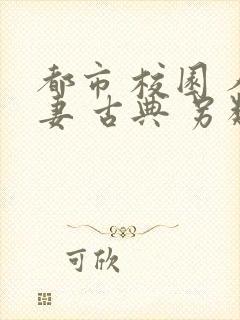 都市 校园
妻 古典 另
可欣